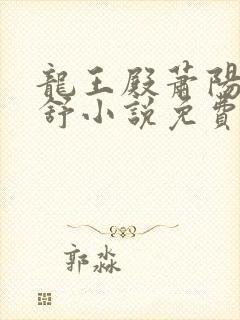 龍王殿蕭陽
舒小說免費
郭淼